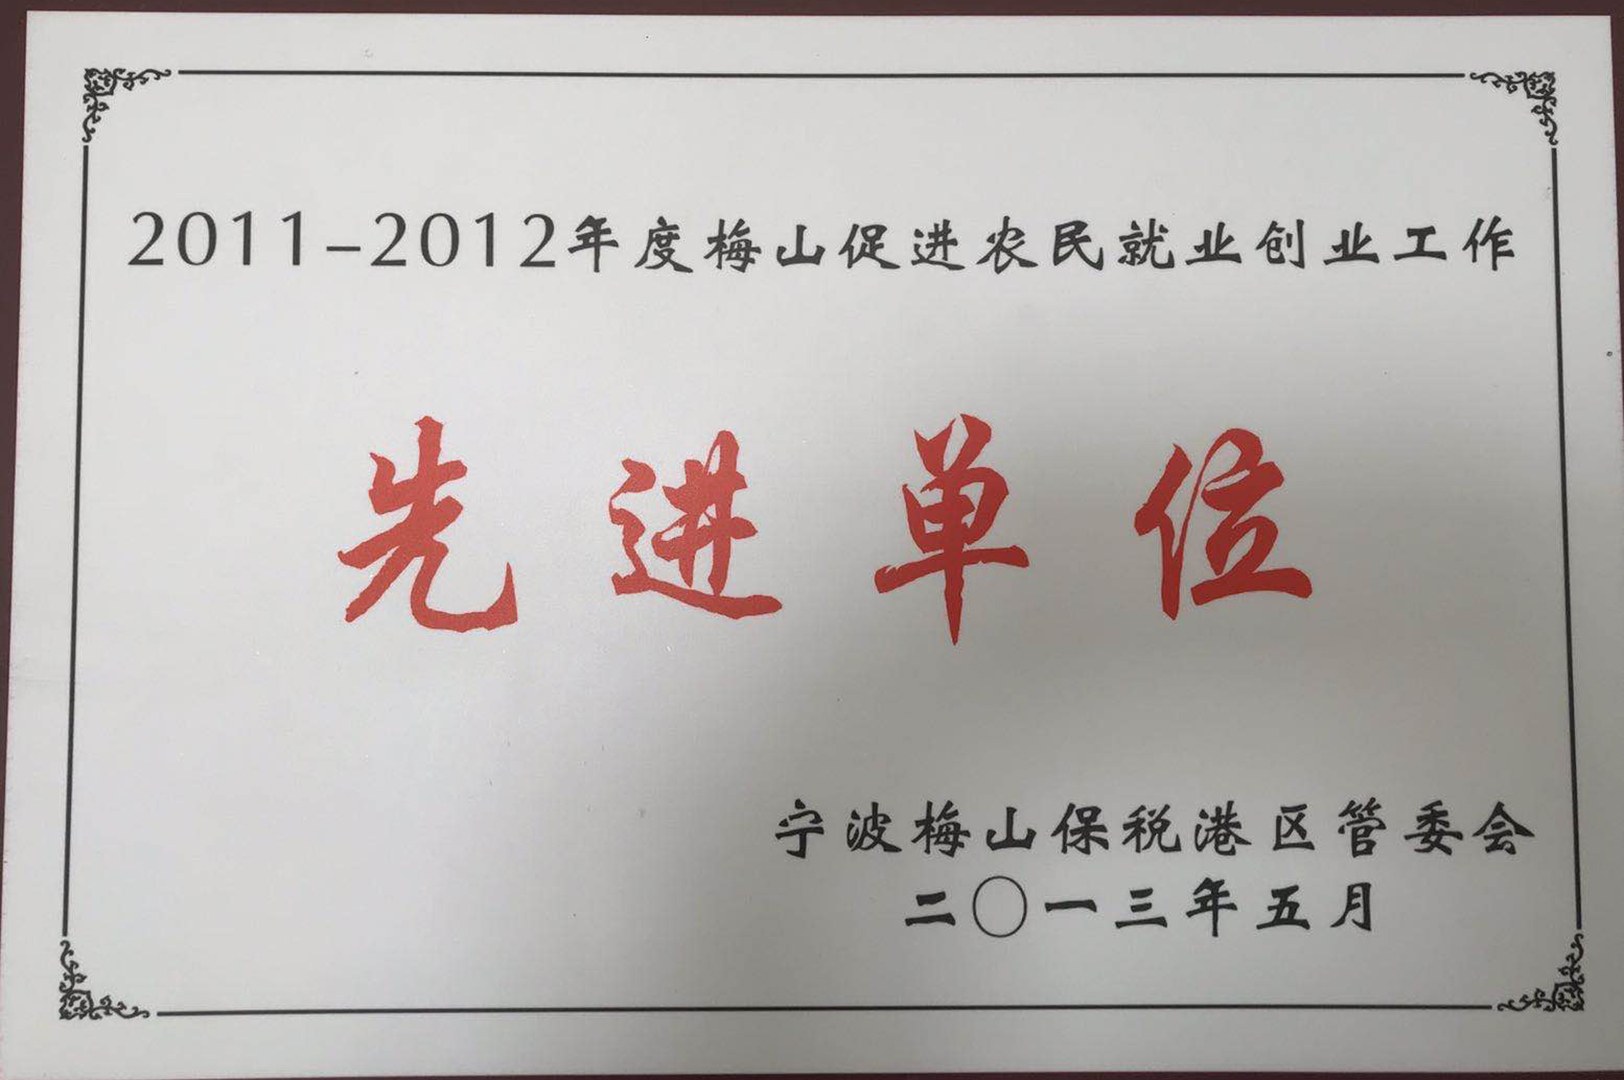 2011-2012年度梅山促进农民就业创业工作
先进单位
宁波梅山保税港区管委会
二〇一三年五月